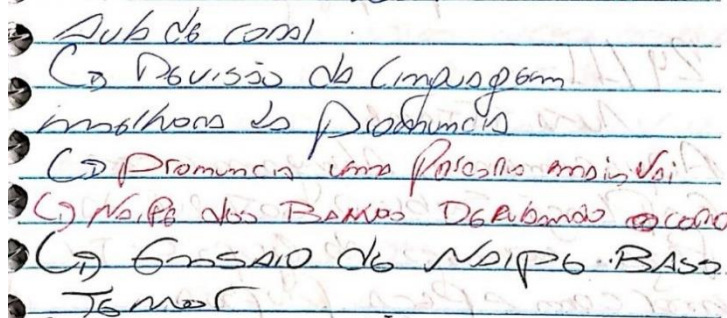 Aula de coral.
↳ Revisão da linguagem
melhora da pronuncia
↳ pronuncia uma mais vai
↳ Naipe dos Baixos Derubando o coro
↳ Ensaio de Naipe. Baso
Tenor